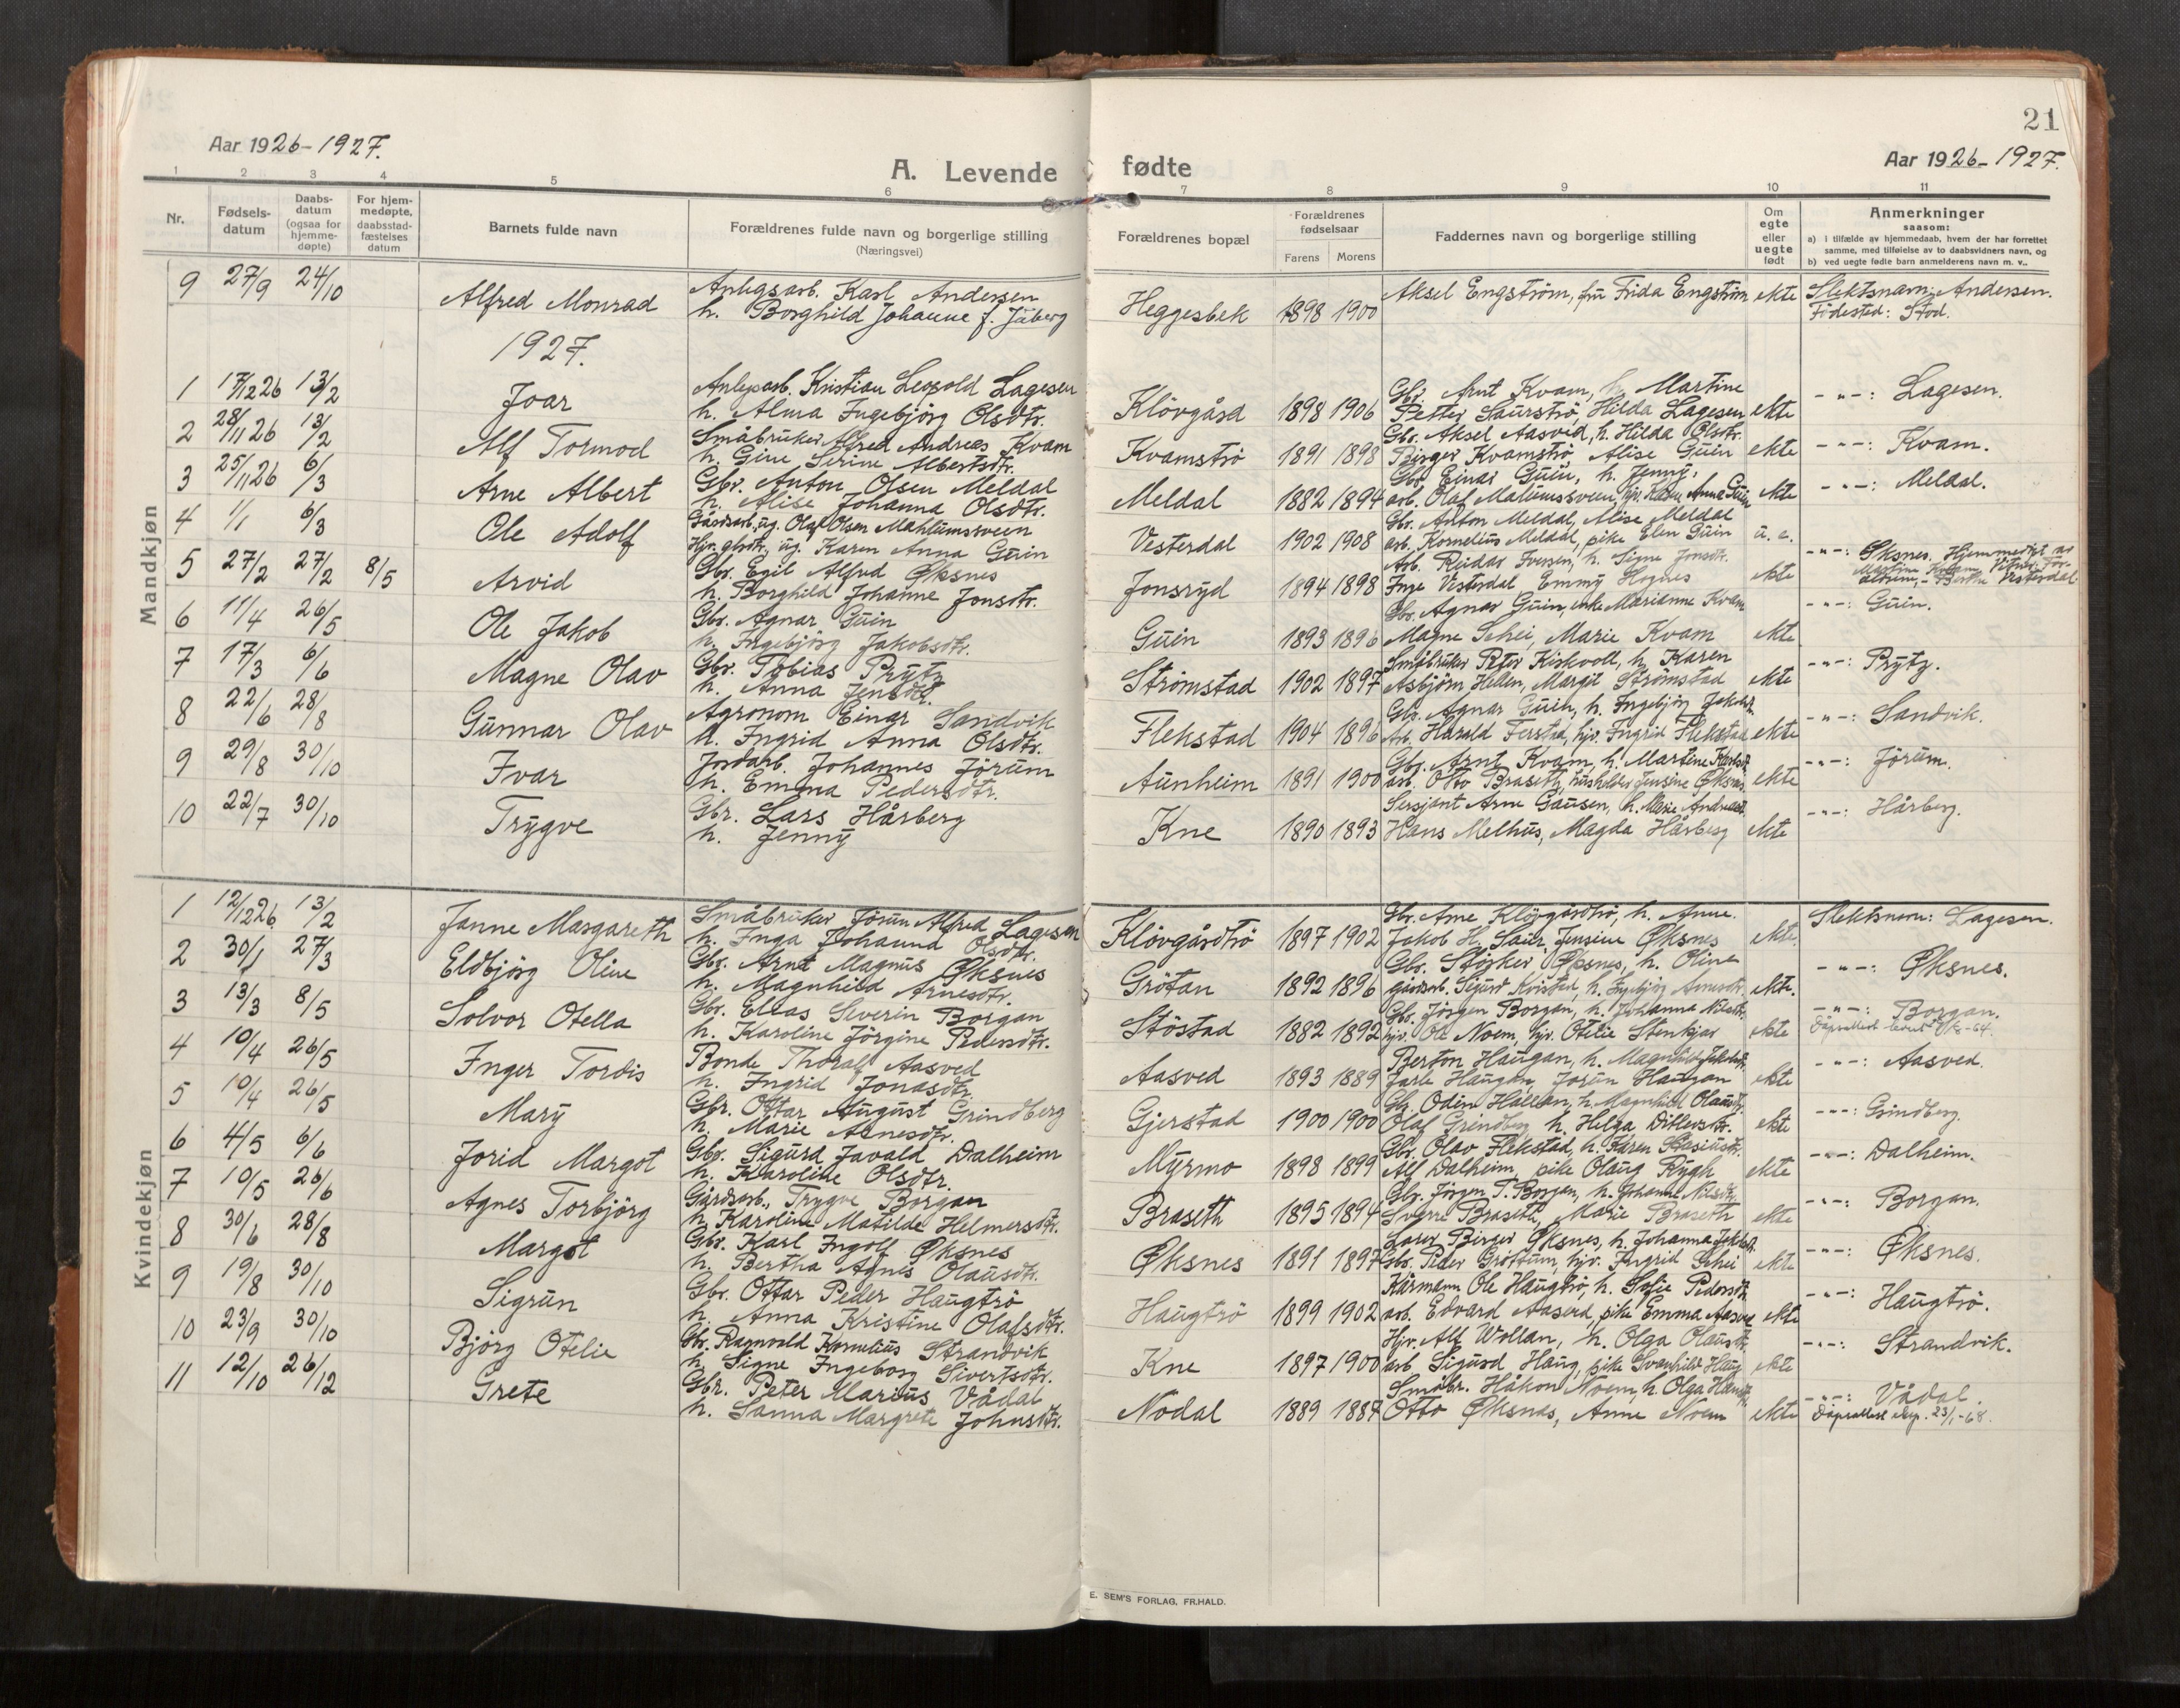 21
Aar 1926-1927.
A. Levende fødte
Aar 1926-1927.
1 2 3 4 5 6 7 8 9 10 11
Nr.
Fødsels-
datum
Daabs-
datum
(ogsaa for
hjemme-
døpte)
For hjem-
medøpte,
daabsstad-
fæstelses
datum
Barnets fulde navn
Forældrenes fulde navn og borgerlige stilling
(Næringsvei)
Forældrenes bopæl
Forældrenes
fødselsaar
Farens Morens
Faddernes navn og borgerlige stilling
Om
egte
eller
uegte
født
Anmerkninger
saasom:
a) i tilfælde av hjemmedaab, hvem der har forrettet
samme, med tilføielse av to daabsvidners navn, og
b) ved uegte fødte barn anmelderens navn m. v..
Mandkjøn
9 27/9 24/10 Alfred Monrad
Anlegsarb. Karl Andersen
h. Borghild Johanne f. Juberg
Heggesbek 1898 1900
Aksel Engström, fru Frida Engström ekte
Slektsnavn: Andersen.
Fødested: Stod.
1927.
1 17/12 26 13/2 Joar
Anlegsarb. Kristian Leopold Lagesen
h. Alma Ingebjörg Olsdtr.
Klövgård 1898 1906
Gbr. Arnt Kvam, h. Martine
Petter Saurströ, Hilda Lagesen ekte
-"-: Lagesen.
2 28/11 26 13/2 Alf Tormod
Småbruker Alfred Andreas Kvam
h. Gine Serine Albertsdtr.
Kvamströ 1891 1898
Gbr. Aksel Aasved, h. Hilda Olsdtr.
Birger Kvamströ, Alise Guin ekte
-"-: Kvam.
3 25/11 26 6/3 Arne Albert
Gbr. Anton Olsen Meldal
h. Alise Johanna Olsdtr.
Meldal 1882 1894
Gbr. Einar Guin, h. Jenny.
arb. Olaf Malumssveen, hjv. Karen Anna Guin ekte
-"-: Meldal.
4 1/1 6/3 Ole Adolf
Gårdsarb., ug. Olaf Olsen Mahlumsveen
Hjv. gbrdtr., ug. Karen Anna Guin
Vesterdal 1902 1908
Gbr. Anton Meldal, Alise Meldal
arb. Kornelius Meldal, pike Elen Guin u. e.
5 27/2 27/2 8/5 Arvid
Gbr. Egil Alfred Øksnes
h. Borghild Johanne Jonsdtr.
Jonsryd 1894 1898
Arb. Reidar Iversen, h. Signe Jonsdtr.
Inge Vesterdal Emmy Hognes ekte
-"-: Øksnes. Hjemmedöpt av
Martine Kvam. Vitner: For-
eldrene, - Berthe Vesterdal
6 11/4 26/5 Ole Jakob
Gbr. Agnar Guin
h. Ingebjörg Jakobsdtr.
Guin 1893 1896
Gbr. Agnar Guin, enke Marianne Kvam
Magne Schei, Marie Kvam ekte
-"-: Guin.
7 17/3 6/6 Magne Olav
Gbr. Tobias Prytz
h. Anna Jensdtr.
Strömstad 1902 1897
Småbruker Peter Kirkvoll, h. Karen
Asbjörn Hellen, Margit Strömstad ekte
-"-: Prytz.
8 22/6 28/8 Gunnar Olav
Agronom Einar Sandvik
h. Ingrid Anna Olsdtr.
Flekstad 1904 1896
Gbr. Agnar Guin, h. Ingebjörg Jakobsdtr.
Arb. Harald Ferstad, hjv. Ingrid Flekstad ekte
-"-: Sandvik.
9 29/8 30/10 Ivar
Jordarb. Johannes Jörum
h. Emma Pedersdtr.
Aunheim 1891 1900
Gbr. Arnt Kvam, h. Martine
arb. Otto Braseth, husholder Jensine Øksnes ekte
-"-: Jörum.
10 22/7 30/10 Trygve
Gbr. Lars Hårberg
h. Jenny
Kne 1890 1893
Sersjant Arne Gausen, h. Marie
Hans Melhus, Magda Hårberg ekte
-"-: Hårberg.
Kvindekjøn
1 12/12 26 13/2 Janne Margareth
Småbruker Jörun Alfred Lagesen
h. Inga Johanna Olsdtr.
Klövgårdtrö 1897 1902
Gbr. Arne Klövgårdtrö, h. Anne.
Jakob H. Saur, Jensine Øksnes ekte.
Slektsnavn: Lagesen.
2 30/1 27/3 Eldbjörg Oline
Gbr. Arnt Magnus Øksnes
h. Magnhild Arnesdtr.
Grötan 1892 1896
Gbr. Störker Øksnes, h. Oline
gårdsarb. Sigurd Kvistad, h. Ingebjörg Arnesdtr. ekte.
-"-: Øksnes.
3 13/3 8/5 Solvor Otella
Gbr. Elias Severin Borgan
h. Karoline Jörgine Pedersdtr.
Stöstad 1882 1892
Gbr. Jörgen Borgan, h. Johanna Nilsdtr.
hjv. Ole Noem, hjv. Otelie Stenkjær ekte
-"-: Borgan.
4 10/4 26/5 Inger Tordis
Bonde Thoralf Aasved
h. Ingrid Jonasdtr.
Aasved 1893 1889
Berton Haugan, h. Magnhild
Jarle Haugan, Jorun Haugan ekte
-"-: Aasved.
5 10/4 26/5 Mary
Gbr. Ottar August Grindberg
h. Marie Arnesdtr.
Gjerstad 1900 1900
Gbr. Odin Hallan, h. Magnhild Olausdtr.
Olaf Grindberg h. Helga Ditlevsdtr. ekte
-"-: Grindberg.
6 4/5 6/6 Jorid Margot
Gbr. Sigurd Javald Dalheim
h. Karoline Olsdtr.
Myrmo 1898 1899
Gbr. Olav Flekstad, h. Karen
Alf Dalheim, pike Olaug Rygh ekte
-"-: Dalheim.
7 10/5 26/6 Agnes Torbjörg
Gårdsarb., Trygve Borgan
h. Karoline Matilde Helmersdtr.
Braseth 1895 1894
Gbr. Jörgen T. Borgan, h. Johanne Nilsdtr.
Sverre Braseth, Marie Braseth ekte
-"-: Borgan.
8 30/6 28/8 Margot
Gbr. Karl Ingolf Øksnes
h. Bertha Agnes Olausdtr.
Øksnes 1891 1897
Lærer Birger Øksnes, h. Johanna
Gbr. Peder Gröttum, hjv. Ingrid Schei ekte
-"-: Øksnes.
9 19/8 30/10 Sigrun
Gbr. Ottar Peder Haugtrö
h. Anna Kristine Olafsdtr.
Haugtrö 1899 1902
Kårmann Ole Haugtrö, h. Sofie Pedersdtr.
arb. Edvard Aasved, pike Emma Aasved ekte
-"-: Haugtrö.
10 23/9 30/10 Björg Otelie
Gbr. Ragnvald Kornelius Strandvik
h. Signe Ingeborg Sivertsdtr.
Kne 1897 1900
Hjv. Alf Wollan, h. Olga Olausdtr.
arb Sigurd Haug, pike Svanhild Haug ekte
-"-: Strandvik.
11 12/10 26/12 Grete
Gbr. Peter Marius Vådal
h. Sanna Margrete Johnsdtr.
Nödal 1889 1887
Småbr. Håkon Noem, h. Olga
Otto Øksnes, Anne Noem ekte
-"-: Vådal.
Dåpsattest eksp. 23/1-68.
E. SEM'S FORLAG, FR.HALD.